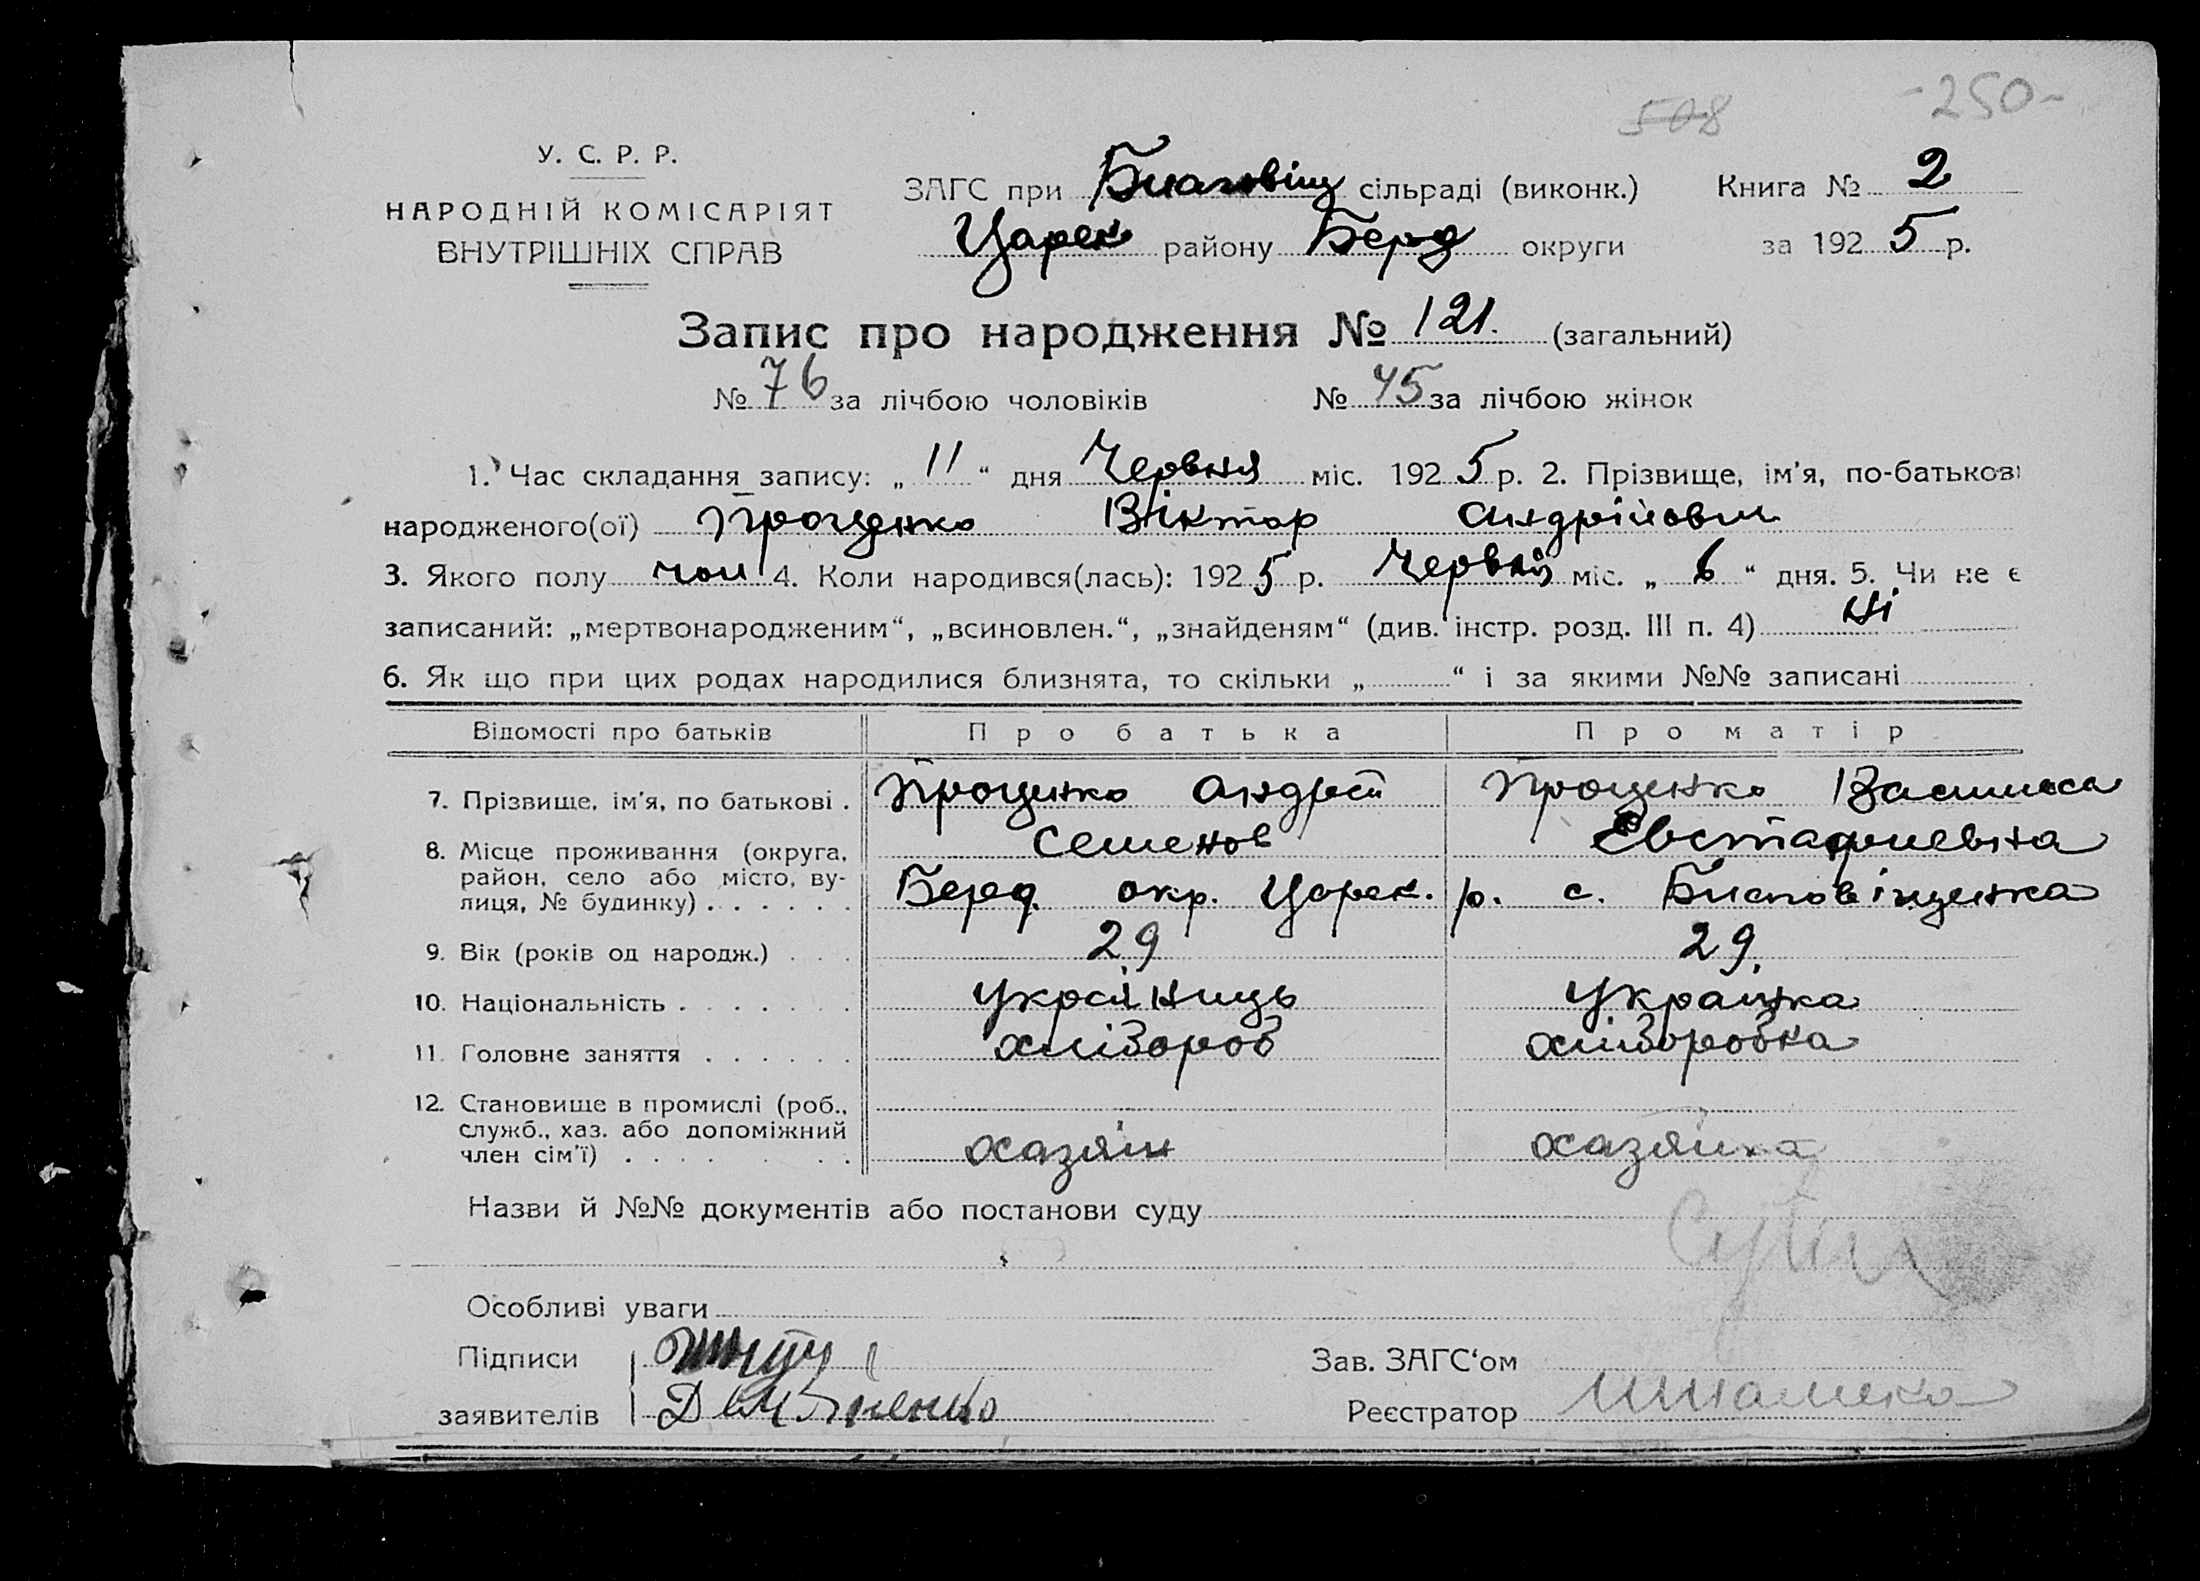 508 -250-
У. С. Р. Р.
НАРОДНІЙ КОМІСАРІЯТ
ВНУТРІШНІХ СПРАВ
ЗАГС при Благовіщ сільраді (виконк.) Книга № 2
Царек району Берд округи за 1925 р.
Запис про народження № 121. (загальний)
№ 76 за лічбою чоловіків № 45 за лічбою жінок
1. Час складання запису: „11“ дня Червня міс. 1925 р. 2. Прізвище, ім'я, по-батькові
народженого(ої) Проценко Віктор Андрійович
3. Якого полу чол 4. Коли народився(лась): 1925 р. Червня міс. „6“ дня. 5. Чи не є
записаний: „мертвонародженим“, „всиновлен.“, „знайденям“ (див. інстр. розд. III п. 4) Ні
6. Як що при цих родах народилися близнята, то скільки „ “ і за якими №№ записані
Відомості про батьків Про батька Про матір
7. Прізвище, ім'я, по батькові . Проценко Андрей Проценко Василиса
Семенов Евстафиевна
8. Місце проживання (округа, район, село або місто, вулиця, № будинку) . . . . . . Берд. окр. Царек. р. с. Благовіщенка
9. Вік (років од народж.) . . . 29 29.
10. Національність . . . . . . . Украіниць Украинка
11. Головне заняття . . . . . . хлібороб хліборобка
12. Становище в промислі (роб., служб., хаз. або допоміжний член сім'ї) . . . . . . . . хазяін хазяйка
Назви й №№ документів або постанови суду
Особливі уваги
Підписи Зав. ЗАГС'ом
заявителів Реєстратор